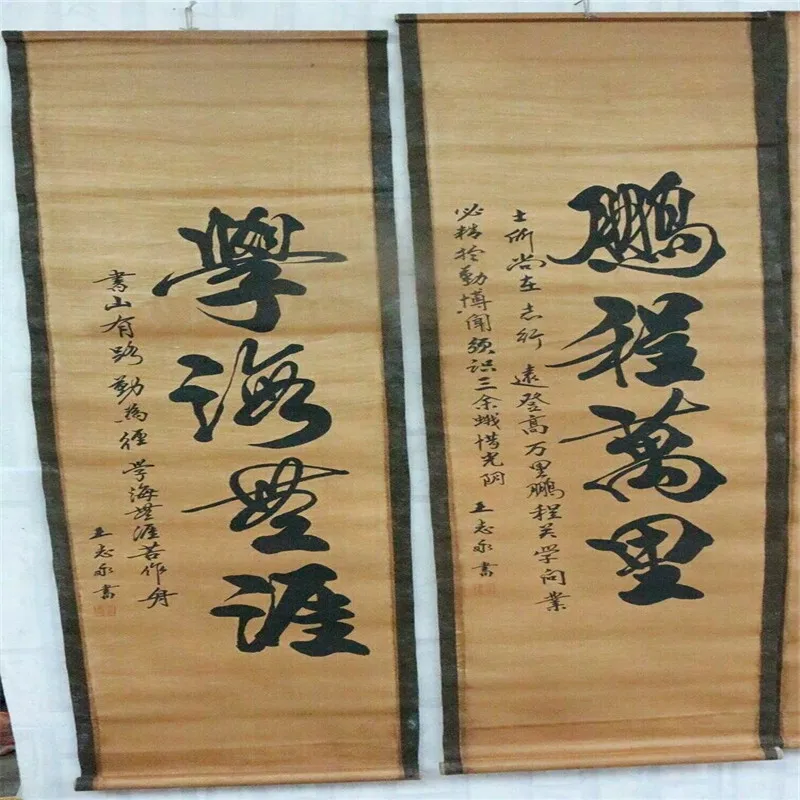 學海無涯
書山有路勤為徑 学海無涯苦作舟
王志永書
鵬程萬里
士所尚在志行 遠登高万里鵬程关学问業
必精於勤博闻须识三余蛾惜光阴
王志永書